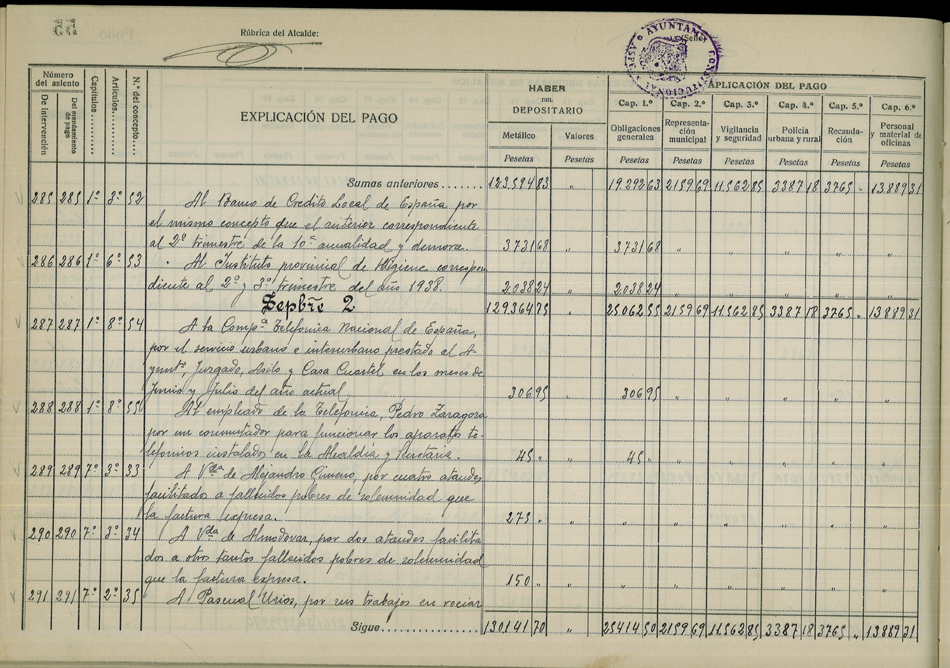 Rúbrica del Alcalde:
AYUNTAM CONSTITUCIONAL ASP
(Sello)
Número del asiento
De intervención
Del mandamiento de pago
Capítulos
Artículos
N.º del concepto
EXPLICACIÓN DEL PAGO
HABER DEL DEPOSITARIO
Metálico
Valores
APLICACIÓN DEL PAGO
Cap. 1.º Cap. 2.º Cap. 3.ª Cap. 4.ª Cap. 5.ª Cap. 6.ª
Obligaciones generales
Representación municipal
Vigilancia y seguridad
Policía urbana y rural
Recaudación
Personal y material de oficinas
Pesetas Pesetas Pesetas Pesetas Pesetas Pesetas Pesetas Pesetas
Sumas anteriores....... 123.594 83 " 19.292 63 2159 69 11.562 85 3387 18 3765 " 13.889 31
285 285 1º 8º 52 Al Banco de Credito Local de España por
el mismo concepto que el anterior correspondiente
al 2º trimestre de la 10ª anualidad y demora. 3731 68 " 3731 68 "
286 286 1º 6º 53 Al Instituto provincial de Higiene correspon
diente al 2º y 3º trimestre del año 1938. 2038 24 " 2038 24 " " " " "
Sepbre 2 129.364 75 " 25.062 55 2159 69 11.562 85 3387 18 3765 " 13.889 31
287 287 1º 8º 54 A la Compª Telefonica Nacional de España,
por el servicio urbano e interurbano prestado al A-
yuntº, Juzgado, Asilo y Casa Cuartel en los meses de
Junio y Julio del año actual. 306 95 " 306 95 " " " " "
288 288 1º 8º 55 Al empleado de la Telefonica, Pedro Zaragoza
por un conmutador para funcionar los aparatos te-
lefonicos instalados en la Alcaldía y Secretaria. 45 " " 45 " " " " " "
289 289 7º 3º 33 A Vda de Alejandro Gimeno, por cuatro ataudes
facilitados a fallecidos pobres de solemnidad que
la factura expresa. 275 " " " " " " " "
290 290 7º 3º 34 A Vda de Almodovar, por dos ataudes facilita
dos a otros tantos fallecidos pobres de solemnidad
que la factura expresa. 150 " " " " " " " "
291 291 7º 2º 35 A Pascual Urios, por sus trabajos en rociar
Sigue................ 130.141 70 " 25.414 50 2159 69 11.562 85 3387 18 3765 " 13.889 31